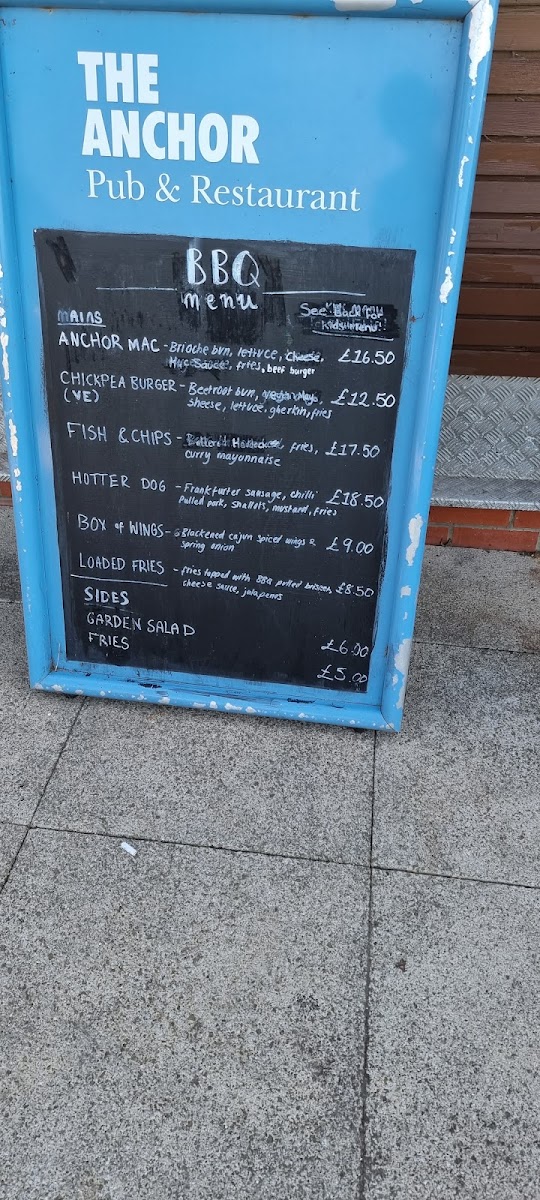 THE
ANCHOR
Pub & Restaurant
BBQ
menu
See Back for
Kids menu!
MAINS
ANCHOR MAC - Brioche bun, lettuce, cheese, £16.50
Mac Sauce, fries, beef burger
CHICKPEA BURGER - Beetroot bun, vegan Mayo, £12.50
(VE) Sheese, lettuce, gherkin, fries
FISH & CHIPS - Battered fries, £17.50
curry mayonnaise
HOTTER DOG - Frankfurter sausage, chilli £18.50
Pulled pork, shallots, mustard, fries
BOX of WINGS - Blackened cajun spiced wings & £9.00
Spring onion
LOADED FRIES - fries topped with BBQ pulled brisket, £8.50
cheese sauce, jalapenos
SIDES
GARDEN SALAD £6.00
FRIES £5.00